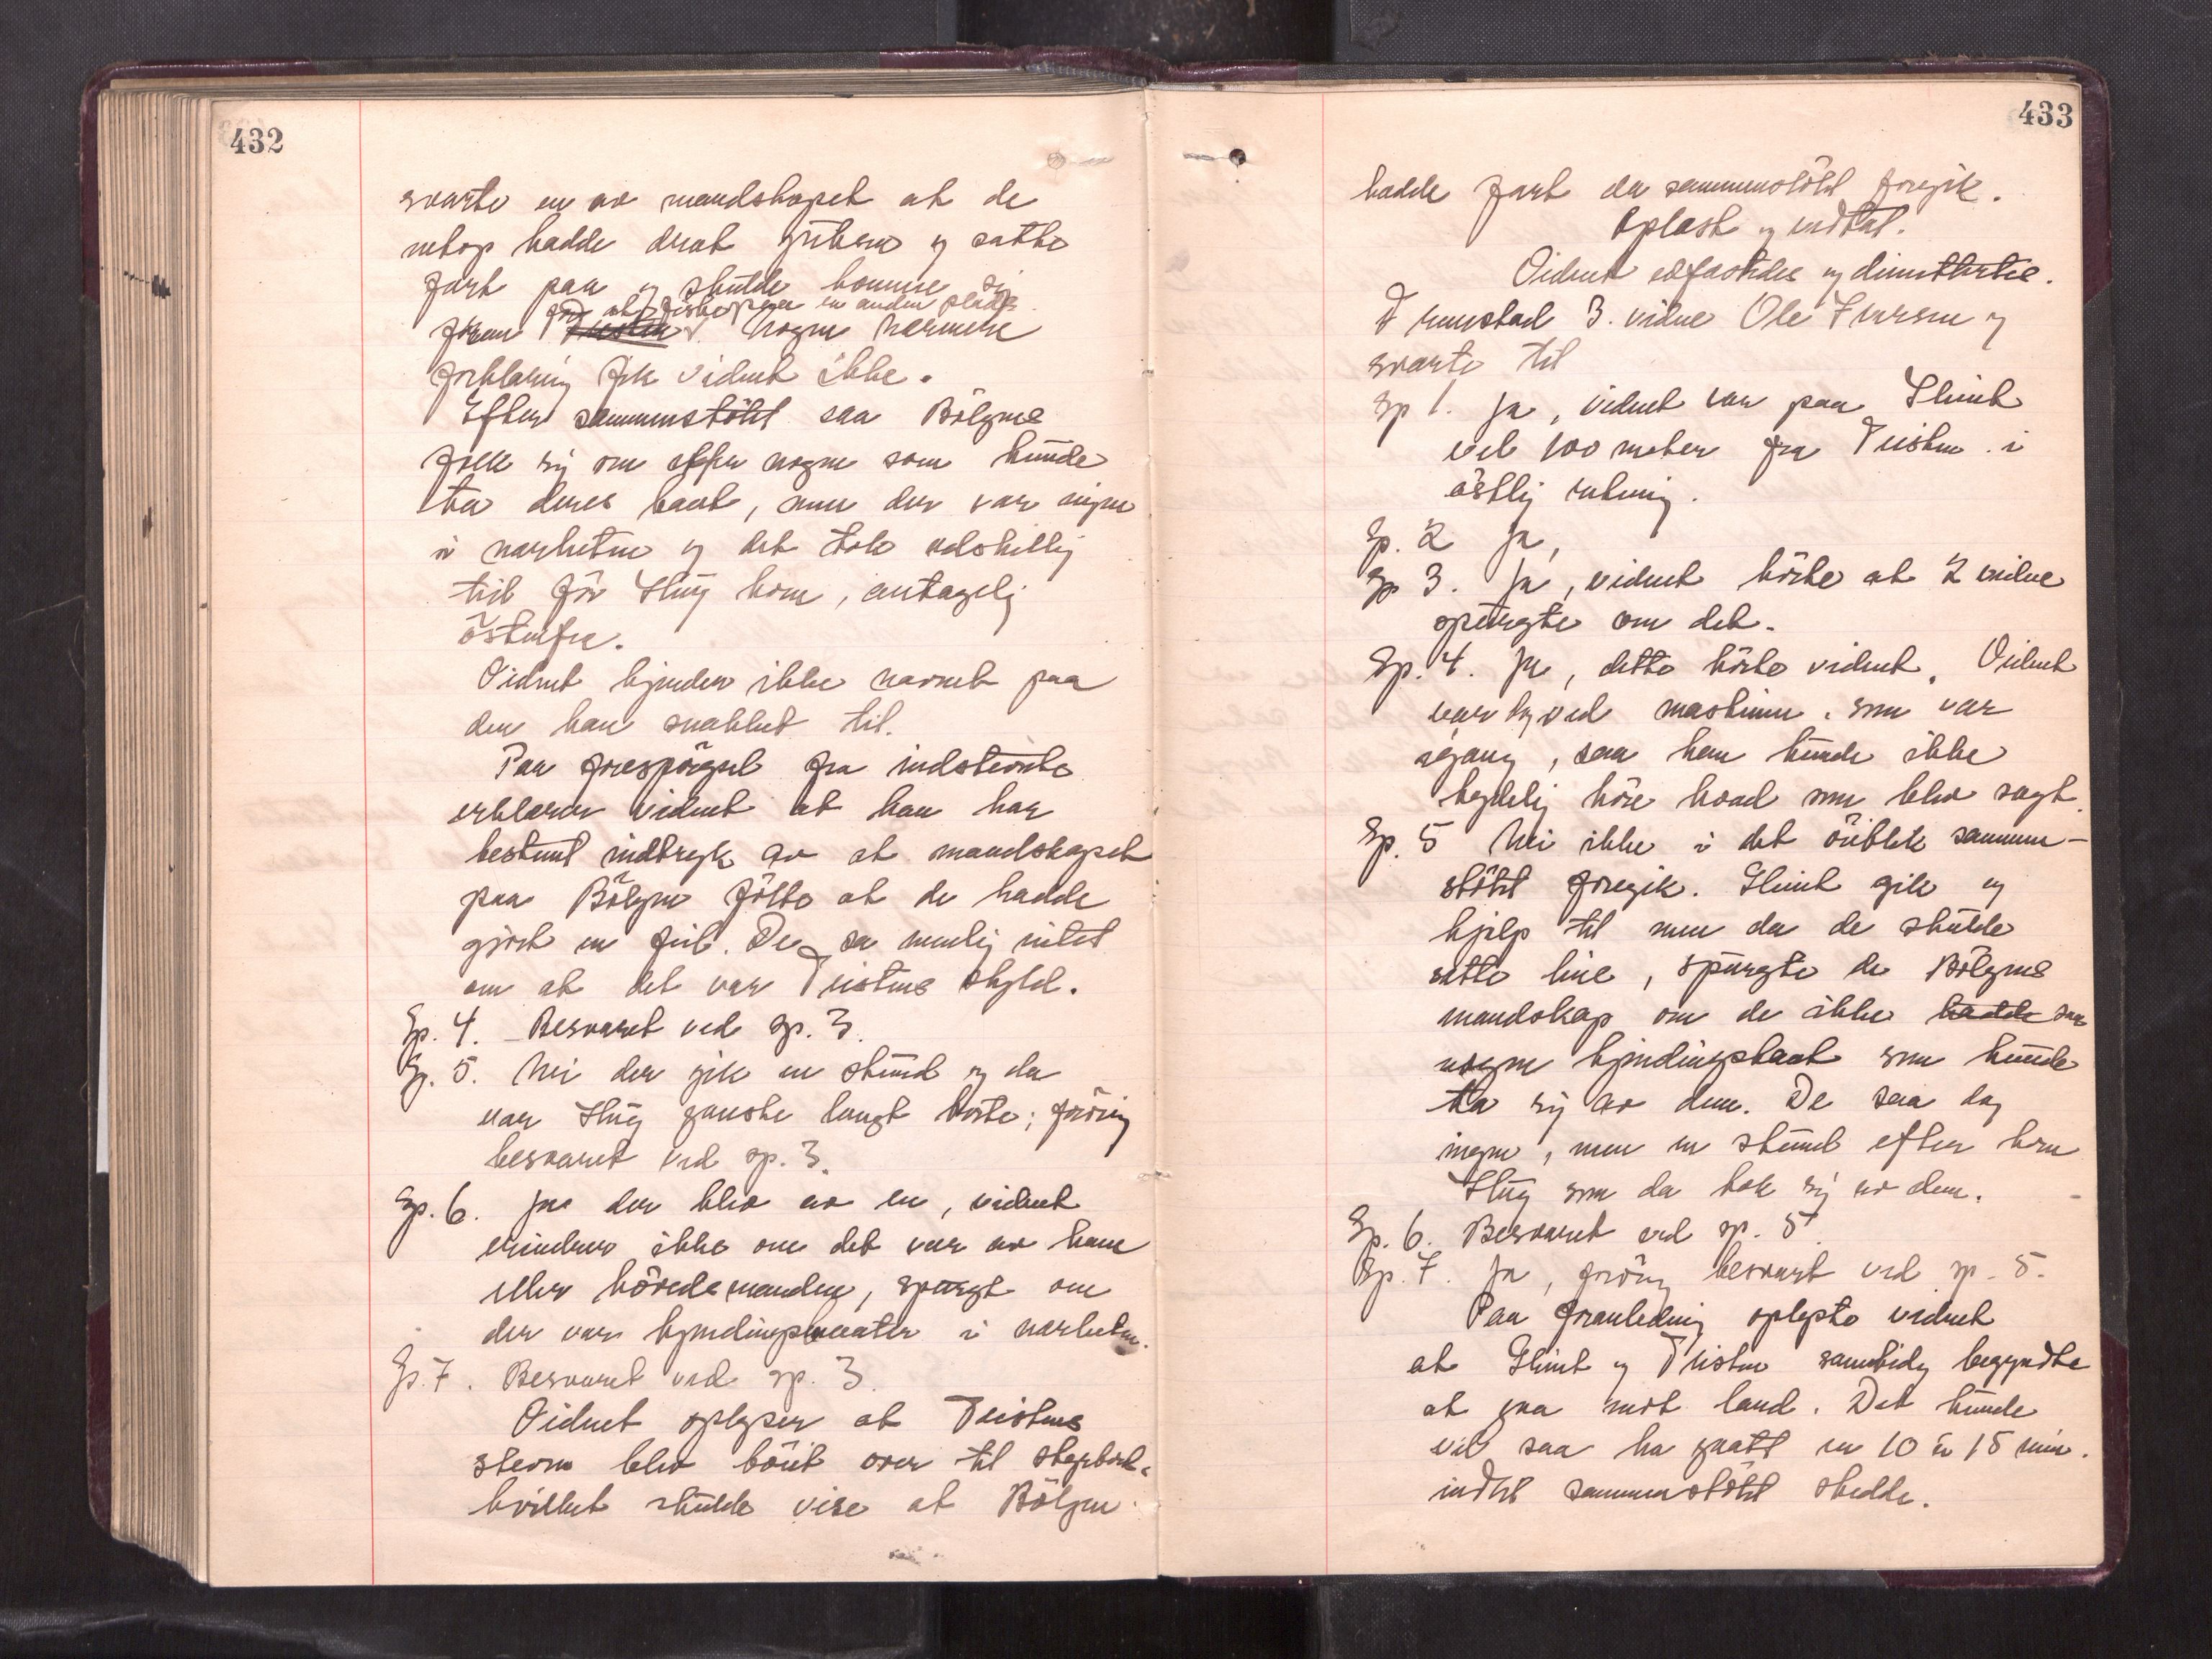 432
svarte en av mandskapet at de
netop hadde drat gutsen og satte
fart paa og skulde komme sig
for at fiske paa en anden plads
foran Teisten. Nogen nærmere
forklaring fik vidnet ikke.
Efter sammenstötet saa Bölgens
folk sig om efter nogen som kunde
ta deres baat, men der var ingen
i nærheten og det tok adskillig
tid för Stug kom, antagelig
östenfra.
Vidnet kjender ikke navnet paa
den han snakket til.
Paa forespörgsel fra indstevnte
erklærer vidnet at han har
bestemt indtryk av at mandskapet
paa Bölgen fölte at de hadde
gjort en feil. De sa nemlig intet
om at det var Teistens skyld.
Sp. 4. Besvaret ved sp. 3.
Sp. 5. Nei der gik en stund og da
var Stug ganske langt borte; forövrig
besvaret ved sp. 3.
Sp. 6. Ja der blev av en, vidnet
erindrer ikke om det var av ham
eller hövedsmanden, spurgt om
der var kjendingsbaater i nærheten.
Sp. 7. Besvaret ved sp. 3.
Vidnet oplyser at Teistens
stevn blev böiet over til styrbord,
hvilket skulde vise at Bölgen
433
hadde fart da sammenstötet foregik.
Oplæst og vedtat.
Vidnet edfæstedes og dimitteredes.
Fremstod 3. vidne Ole Iversen og
svarte til
Sp 1. Ja, vidnet var paa Glimt
vel 100 meter fra Teisten i
östlig retning.
Sp. 2 Ja,
Sp 3. Ja, vidnet hörte at 2 vidne
spurgte om det.
Sp. 4. Ja, dette hörte vidnet. Vidnet
var dog ved maskinen, som var
igang, saa han kunde ikke
tydelig höre hvad som blev sagt.
Sp. 5 Nei ikke i det öieblik sammen-
stötet foregik. Glimt gik og
hjelp til men da de skulde
sette line, spurgte de Bölgens
mandskap om de ikke hadde saa
nogen kjendingsbaat som kunde
ta sig av dem. De saa dog
ingen, men en stund efter kom
Stug som da tok sig av dem.
Sp. 6. Besvaret ved sp. 5.
Sp. 7. Ja, forövrig besvaret ved sp. 5.
Paa foranledning oplyste vidnet
at Glimt og Teisten samtidig begyndte
at gaa mot land. Det kunde
vel saa ha gaatt en 10 à 15 min.
indtil sammenstötet skedde.